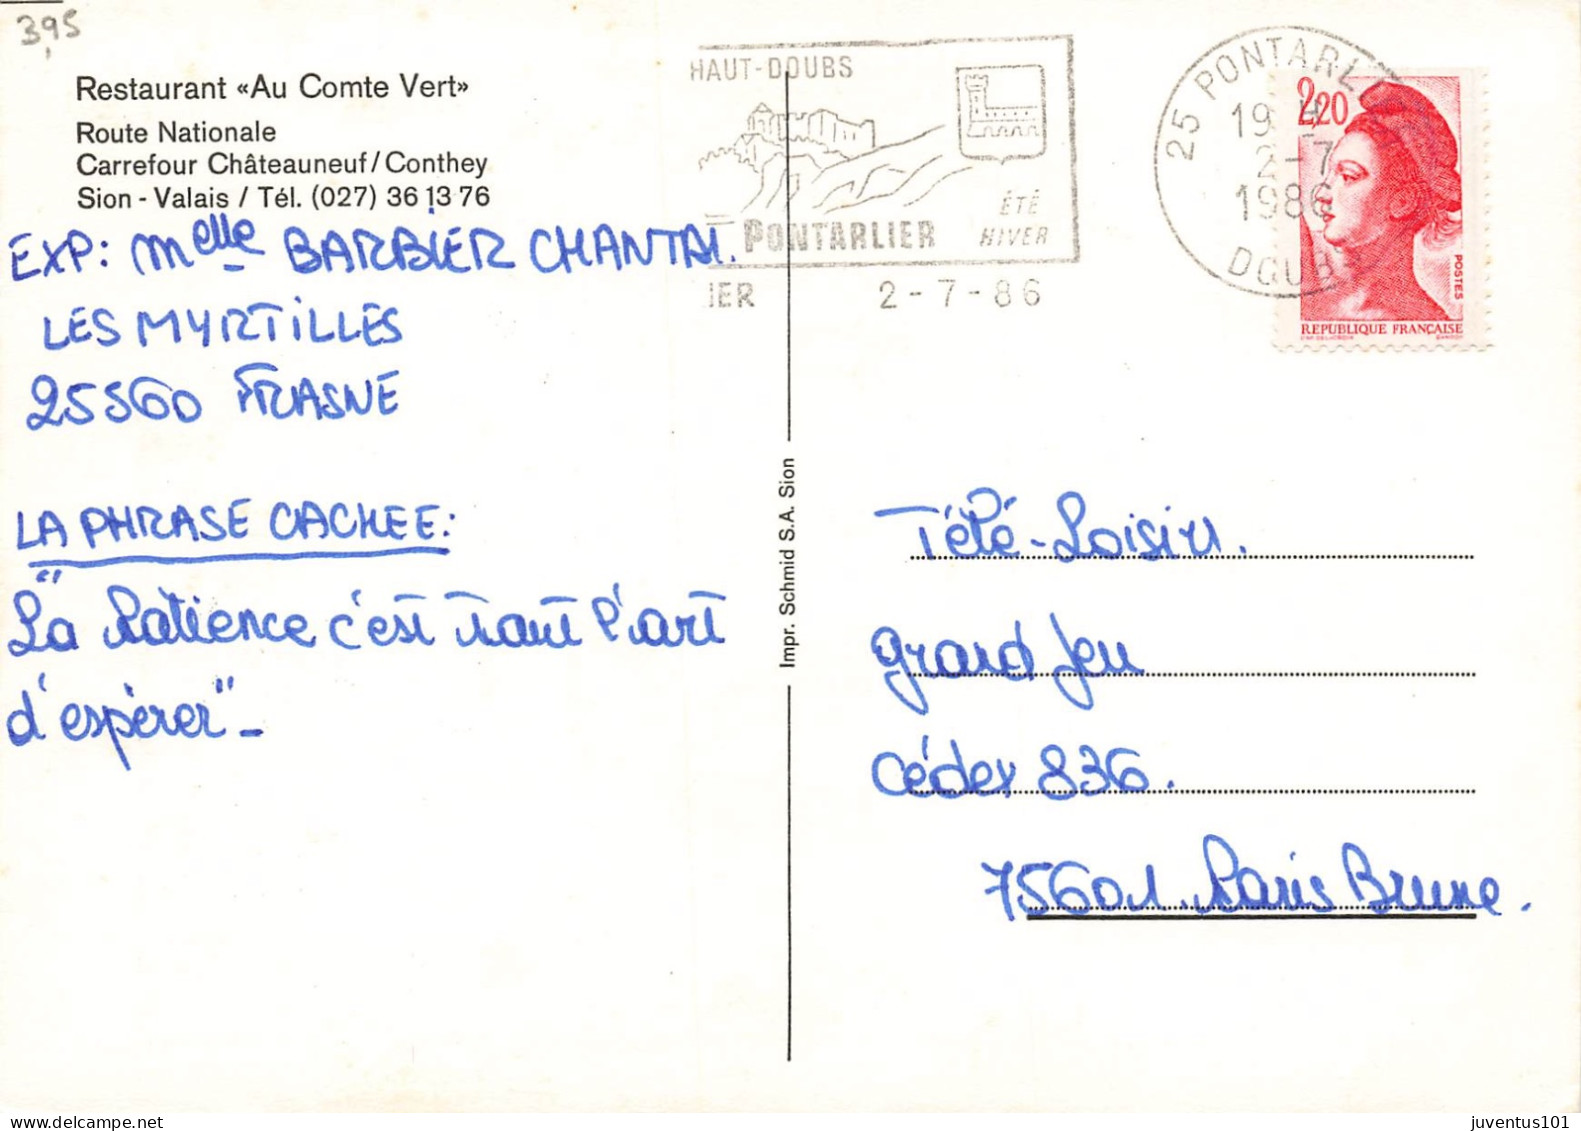 3,95
Restaurant «Au Comte Vert»
Route Nationale
Carrefour Châteauneuf/Conthey
Sion - Valais / Tél. (027) 36 13 76
EXP: Melle BARBIER CHANTAL.
LES MYRTILLES
25560 FRASNE
LA PHRASE CACHEE:
"La Patience c'est tout l'art
d'espèrer"-
Impr. Schmid S.A. Sion
HAUT-DOUBS
PONTARLIER
ÉTÉ
HIVER
IER 2-7-86
25 PONTARL
19 H
2-7
1986
DOUBS
2,20
POSTES
REPUBLIQUE FRANÇAISE
Télé-Loisirs.
grand Jeu
Cédex 836.
75601. Paris Brune.
juventus101